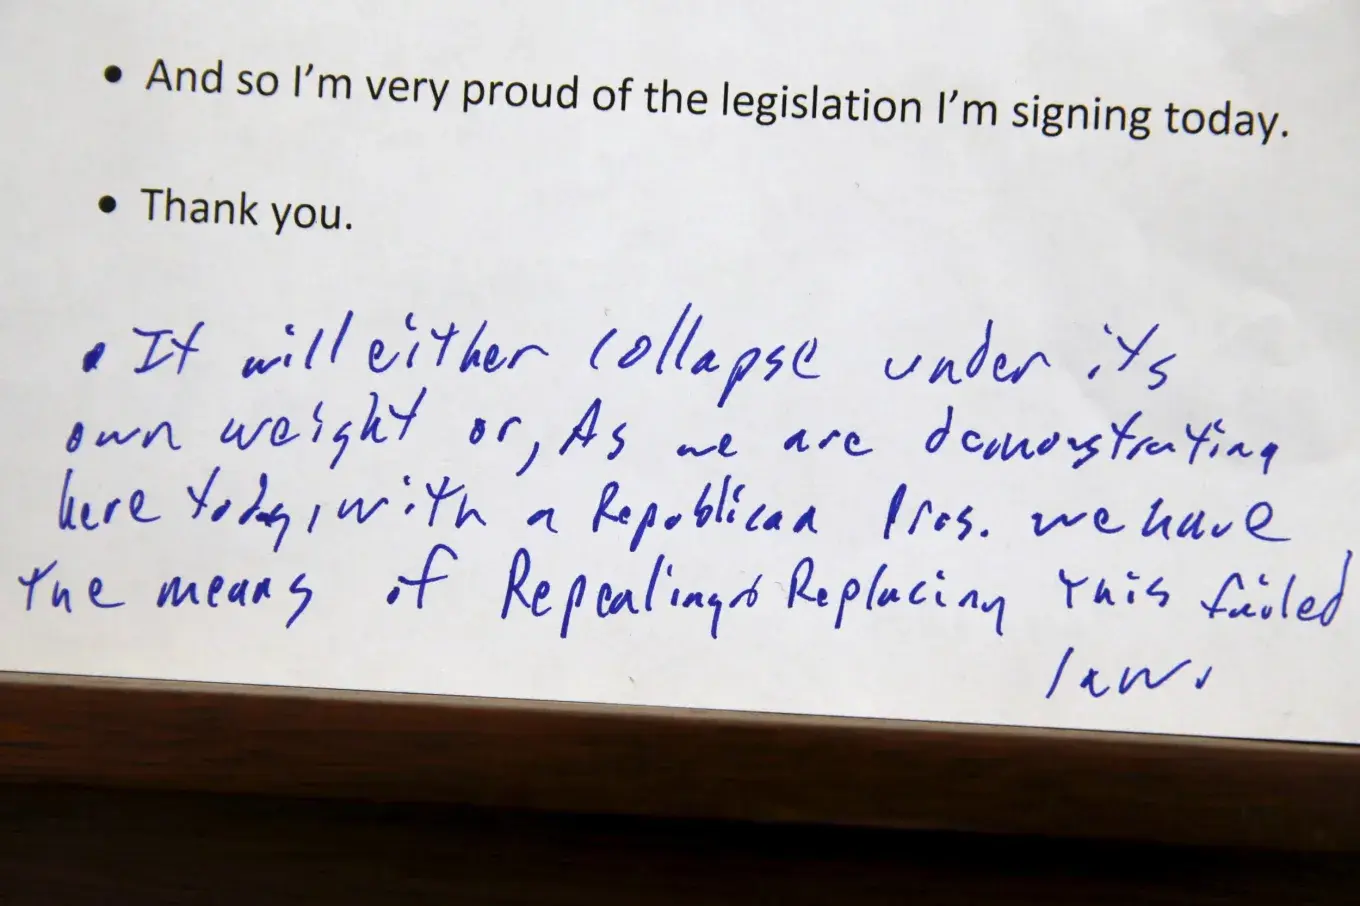 • And so I'm very proud of the legislation I'm signing today.
• Thank you.
• It will either collapse under it's
own weight or, As we are demonstrating
here today, with a Republican Pres. we have
the means of Repealing & Replacing this failed
law.